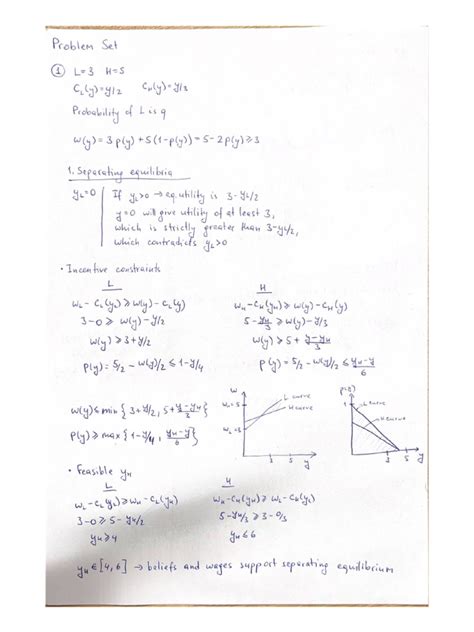 Problem Set
① L=3 H=5
C_L(y)=y/2 C_H(y)=y/3
Probability of L is q
w(y)=3p(y)+5(1-p(y))=5-2p(y)≥3
1. Separating equilibria
y_L=0 | If y_L>0 → eq. utility is 3-y_L/2
y=0 will give utility of at least 3,
which is strictly greater than 3-y_L/2,
which contradicts y_L>0
• Incentive constraints
L H
w_L-C_L(y_L)≥w(y)-C_L(y) w_H-C_H(y_H)≥w(y)-C_H(y)
3-0≥w(y)-y/2 5-y_H/3≥w(y)-y/3
w(y)>3+y/2 w(y)>5+(y-y_H)/3
p(y)=5/2-w(y)/2≤1-y/4 p(y)=5/2-w(y)/2≤(y_H-y)/6
w(y)≤min{3+y/2, 5+(y-y_H)/3}
p(y)≥max{1-y/4, (y_H-y)/6}
w
w_H=5
w_L=3
L curve
H curve
3 5 y
p(y)
1
L curve
H curve
3 5 y
• Feasible y_H
L H
w_L-C_L(y_L)≥w_H-C_L(y_H) w_H-C_H(y_H)≥w_L-C_H(y_L)
3-0≥5-y_H/2 5-y_H/3≥3-0/3
y_H≥4 y_H≤6
y_H∈[4,6] → beliefs and wages support separating equilibrium